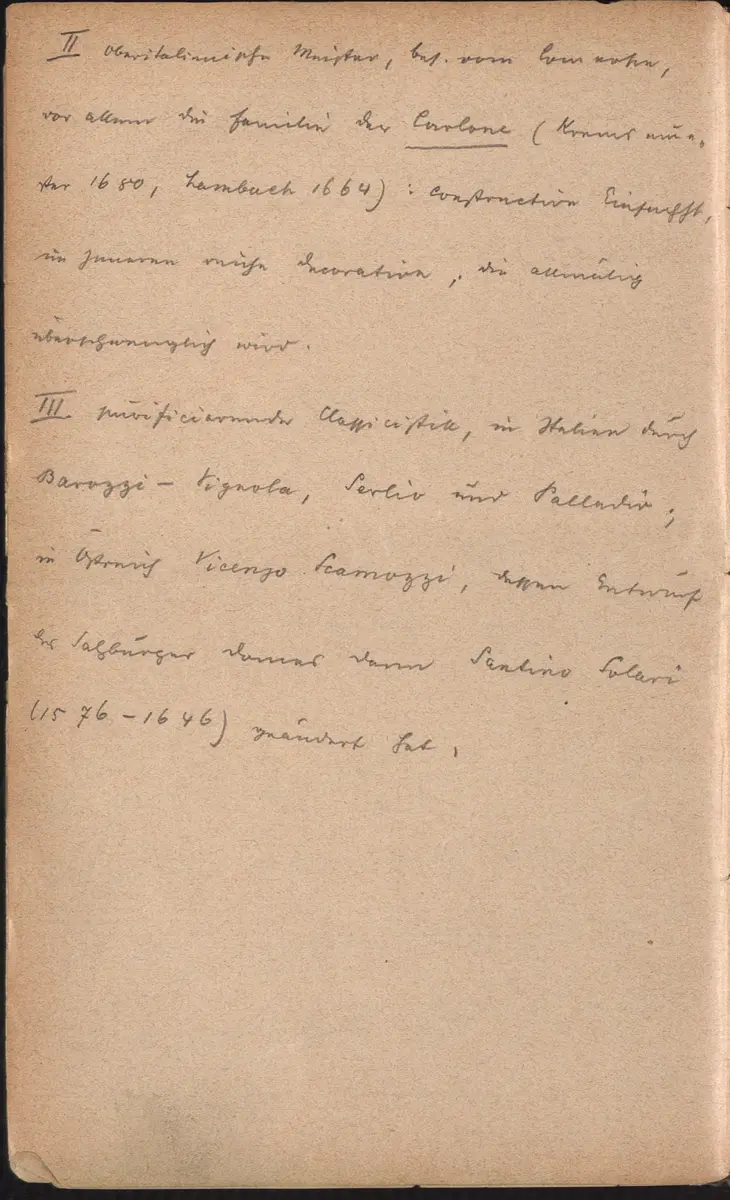 II oberitalienische Meister, bes. vom Comersee,
vor allem die Familie der Carlone (Kremsmün-
ster 1680, Lambach 1664): constructive Einfachht,
im Inneren reiche Decoration, die allmälig
überschwenglich wird.
III. purificierender Classicistik, in Italien durch
Barozzi - Vignola, Serlio und Palladio;
in Östreich Vicenzo Scamozzi, dessen Entwurf
des Salzburger Domes dann Santino Solari
(1576-1646) geändert hat.